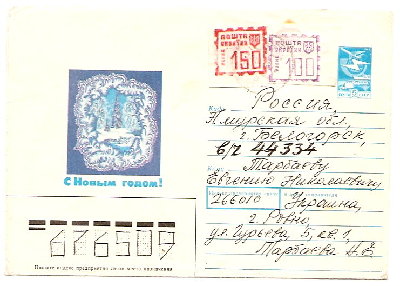 ПОШТА
УКРАЇНА
150
ПОШТА
УКРАЇНА
100
Россия
Амурская обл.
г. Белогорск,
в/ч 44334
Мартаеву
Евгению Николаевичу
266010 Украина,
г. Ровно,
ул. Гурьева 5, кв. 1,
Мартаева Н.В.
С Новым годом!
676509
Индекс предприятия связи места назначения